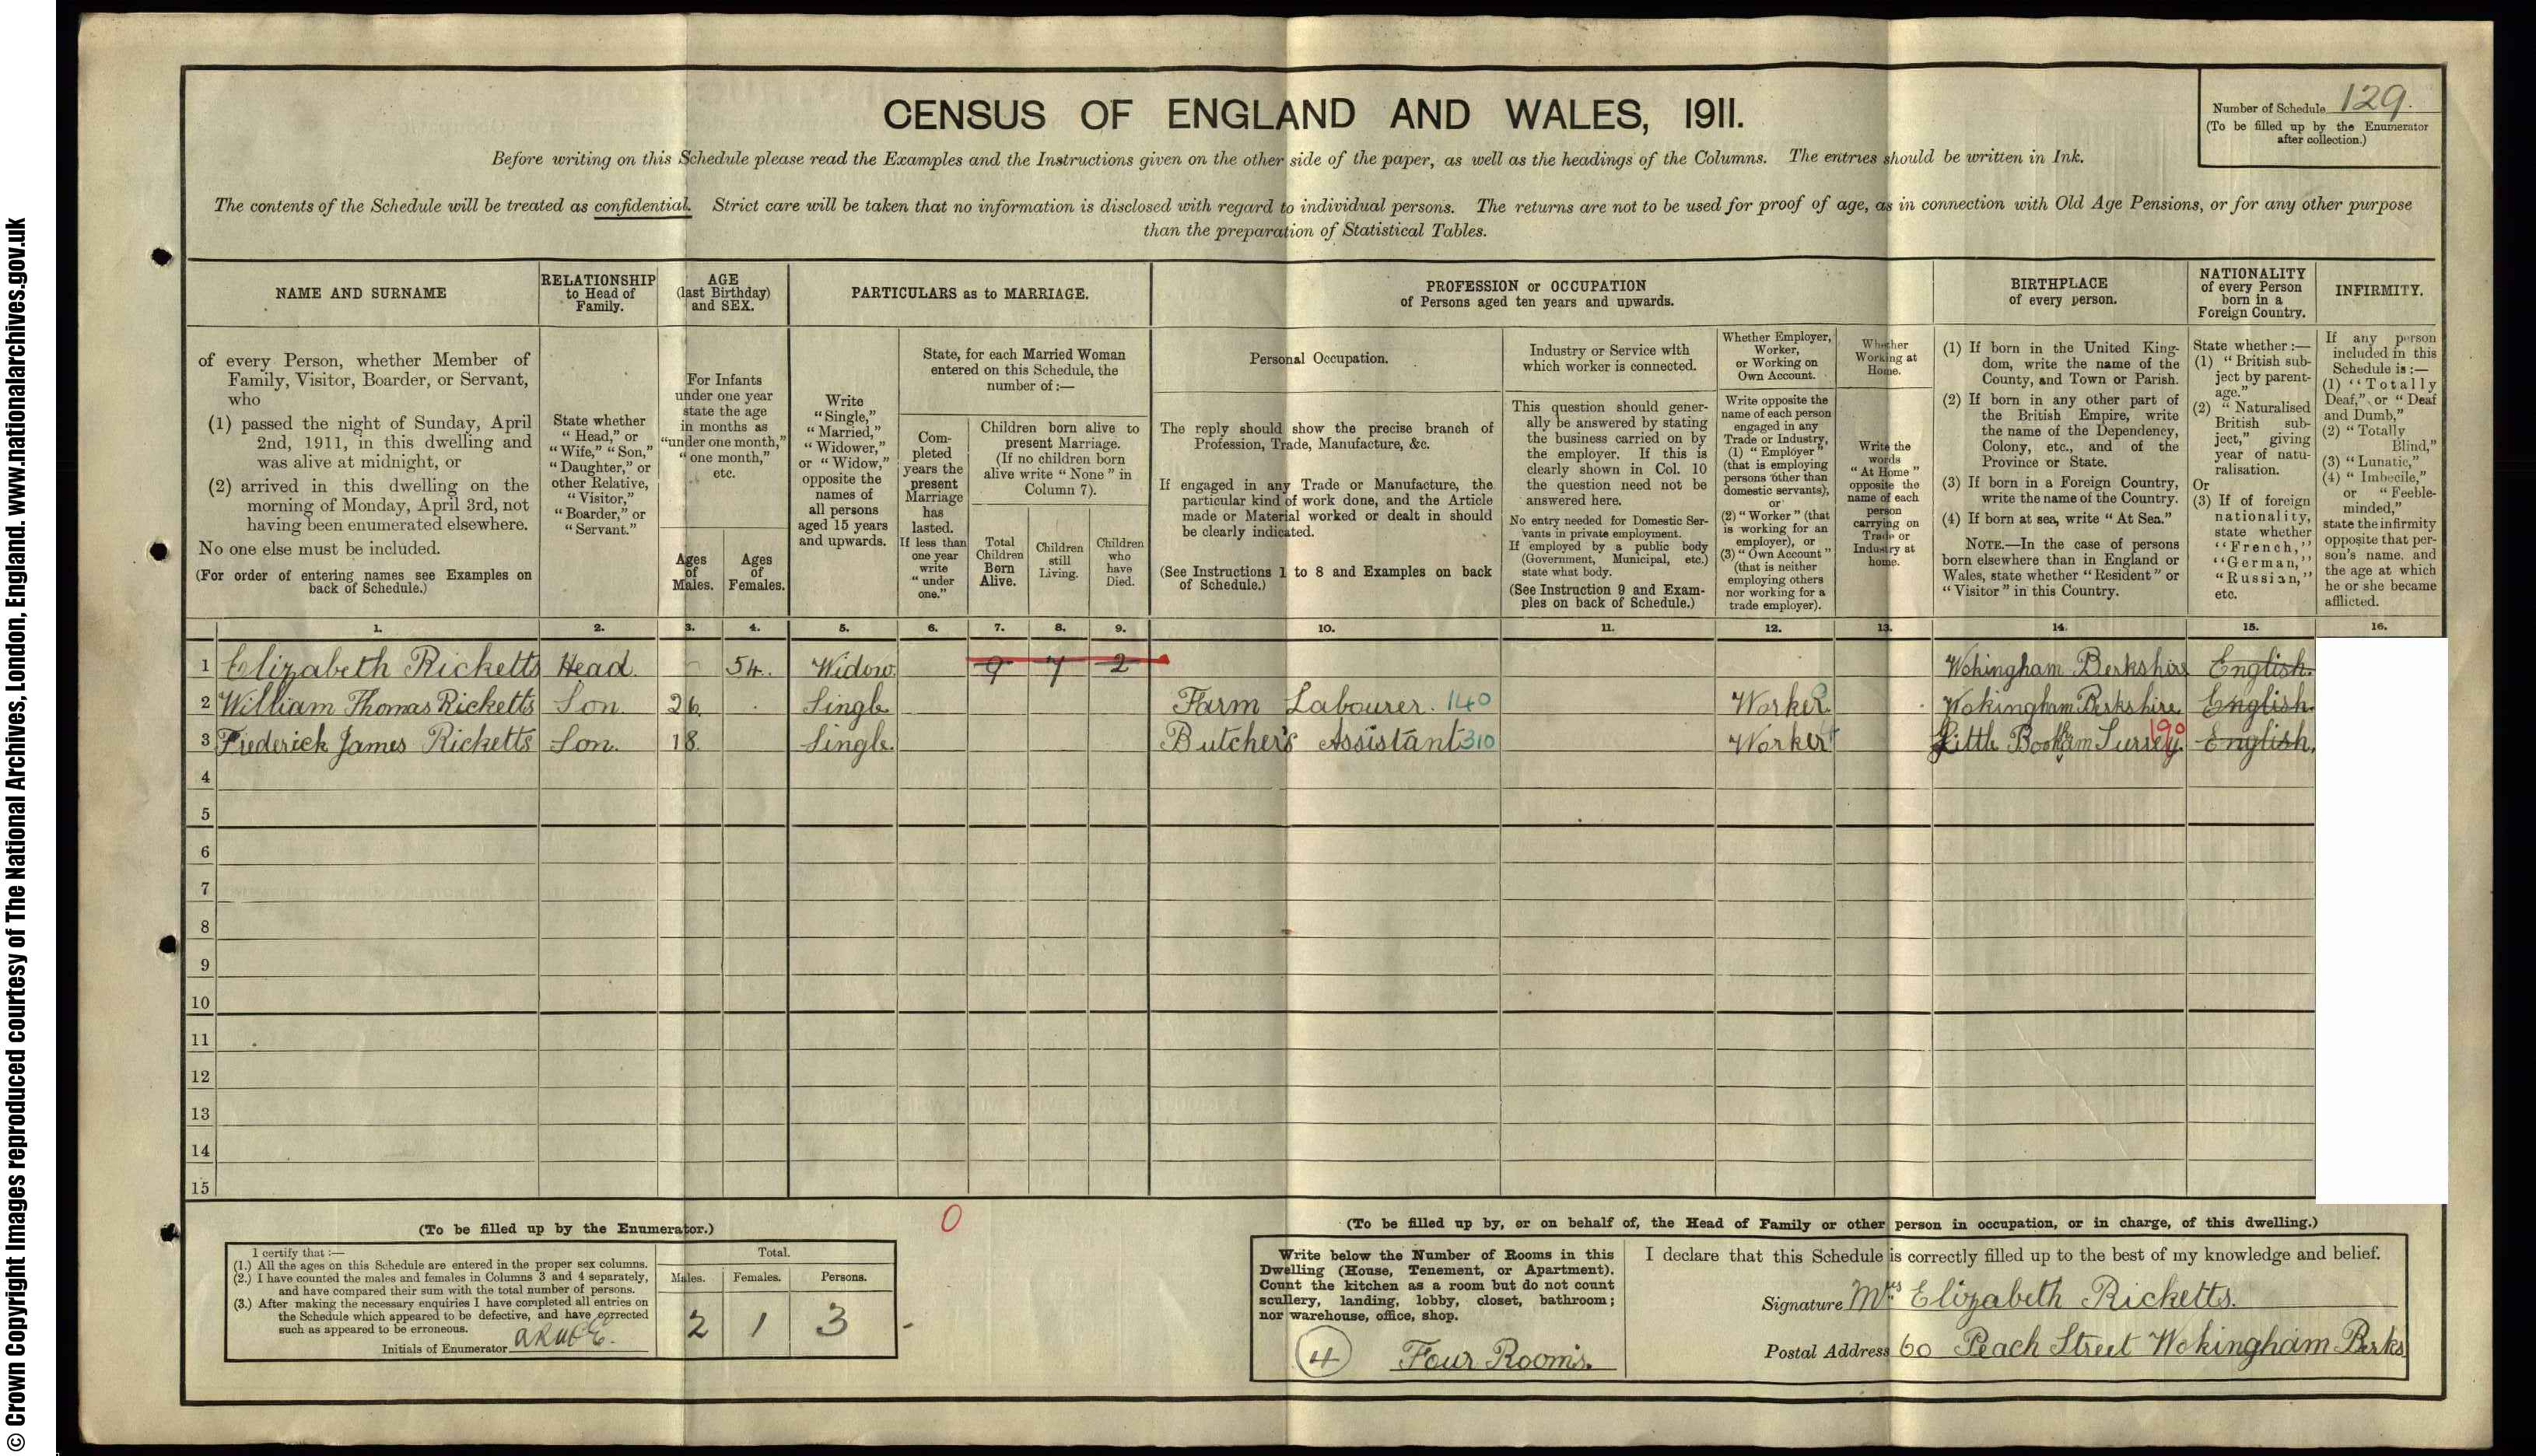 © Crown Copyright Images reproduced courtesy of The National Archives, London, England. www.nationalarchives.gov.uk
CENSUS OF ENGLAND AND WALES, 1911.
Number of Schedule 129.
(To be filled up by the Enumerator
after collection.)
Before writing on this Schedule please read the Examples and the Instructions given on the other side of the paper, as well as the headings of the Columns. The entries should be written in Ink.
The contents of the Schedule will be treated as confidential. Strict care will be taken that no information is disclosed with regard to individual persons. The returns are not to be used for proof of age, as in connection with Old Age Pensions, or for any other purpose
than the preparation of Statistical Tables.
NAME AND SURNAME
of every Person, whether Member of
Family, Visitor, Boarder, or Servant,
who
(1) passed the night of Sunday, April
2nd, 1911, in this dwelling and
was alive at midnight, or
(2) arrived in this dwelling on the
morning of Monday, April 3rd, not
having been enumerated elsewhere.
No one else must be included.
(For order of entering names see Examples on
back of Schedule.)
RELATIONSHIP
to Head of
Family.
State whether
"Head," or
"Wife," "Son,"
"Daughter," or
other Relative,
"Visitor,"
"Boarder," or
"Servant."
AGE
(last Birthday)
and SEX.
For Infants
under one year
state the age
in months as
"under one month,"
"one month,"
etc.
Ages
of
Males.
Ages
of
Females.
PARTICULARS as to MARRIAGE.
Write
"Single,"
"Married,"
"Widower,"
or "Widow,"
opposite the
names of
all persons
aged 15 years
and upwards.
State, for each Married Woman
entered on this Schedule, the
number of:—
Com-
pleted
years the
present
Marriage
has
lasted.
If less than
one year
write
"under
one."
Children born alive to
present Marriage.
(If no children born
alive write "None" in
Column 7).
Total
Children
Born
Alive.
Children
still
Living.
Children
who
have
Died.
PROFESSION or OCCUPATION
of Persons aged ten years and upwards.
Personal Occupation.
The reply should show the precise branch of
Profession, Trade, Manufacture, &c.
If engaged in any Trade or Manufacture, the
particular kind of work done, and the Article
made or Material worked or dealt in should
be clearly indicated.
(See Instructions 1 to 8 and Examples on back
of Schedule.)
Industry or Service with
which worker is connected.
This question should gener-
ally be answered by stating
the business carried on by
the employer. If this is
clearly shown in Col. 10
the question need not be
answered here.
No entry needed for Domestic Ser-
vants in private employment.
If employed by a public body
(Government, Municipal, etc.)
state what body.
(See Instruction 9 and Exam-
ples on back of Schedule.)
Whether Employer,
Worker,
or Working on
Own Account.
Write opposite the
name of each person
engaged in any
Trade or Industry,
(1) "Employer"
(that is employing
persons other than
domestic servants),
or
(2) "Worker" (that
is working for an
employer), or
(3) "Own Account"
(that is neither
employing others
nor working for a
trade employer).
Whether
Working at
Home.
Write the
words
"At Home"
opposite the
name of each
person
carrying on
Trade or
Industry at
home.
BIRTHPLACE
of every person.
(1) If born in the United King-
dom, write the name of the
County, and Town or Parish.
(2) If born in any other part of
the British Empire, write
the name of the Dependency,
Colony, etc., and of the
Province or State.
(3) If born in a Foreign Country,
write the name of the Country.
(4) If born at sea, write "At Sea."
NOTE.—In the case of persons
born elsewhere than in England or
Wales, state whether "Resident" or
"Visitor" in this Country.
NATIONALITY
of every Person
born in a
Foreign Country.
State whether:—
(1) "British sub-
ject by parent-
age."
(2) "Naturalised
British sub-
ject," giving
year of natu-
ralisation.
Or
(3) If of foreign
nationality,
state whether
"French,"
"German,"
"Russian,"
etc.
INFIRMITY.
If any person
included in this
Schedule is:—
(1) "Totally
Deaf," or "Deaf
and Dumb,"
(2) "Totally
Blind,"
(3) "Lunatic,"
(4) "Imbecile,"
or "Feeble-
minded,"
state the infirmity
opposite that per-
son's name, and
the age at which
he or she became
afflicted.
1. 2. 3. 4. 5. 6. 7. 8. 9. 10. 11. 12. 13. 14. 15. 16.
1 Elizabeth Ricketts Head - 54. Widow. 9 7 2 Wokingham Berkshire English.
2 William Thomas Ricketts Son. 26 Single. Farm Labourer. 140 Worker. Wokingham Berkshire English.
3 Frederick James Ricketts Son. 18 Single. Butcher's Assistant 310 Worker Little Bookham Surrey. 190 English.
4
5
6
7
8
9
10
11
12
13
14
15
(To be filled up by the Enumerator.)
I certify that:—
(1.) All the ages on this Schedule are entered in the proper sex columns.
(2.) I have counted the males and females in Columns 3 and 4 separately,
and have compared their sum with the total number of persons.
(3.) After making the necessary enquiries I have completed all entries on
the Schedule which appeared to be defective, and have corrected
such as appeared to be erroneous.
Initials of Enumerator
Total.
Males. Females. Persons.
2 1 3
0
(To be filled up by, or on behalf of, the Head of Family or other person in occupation, or in charge, of this dwelling.)
Write below the Number of Rooms in this
Dwelling (House, Tenement, or Apartment).
Count the kitchen as a room but do not count
scullery, landing, lobby, closet, bathroom;
nor warehouse, office, shop.
4 Four Rooms.
I declare that this Schedule is correctly filled up to the best of my knowledge and belief.
Signature Mrs Elizabeth Ricketts.
Postal Address 60 Peach Street Wokingham Berks